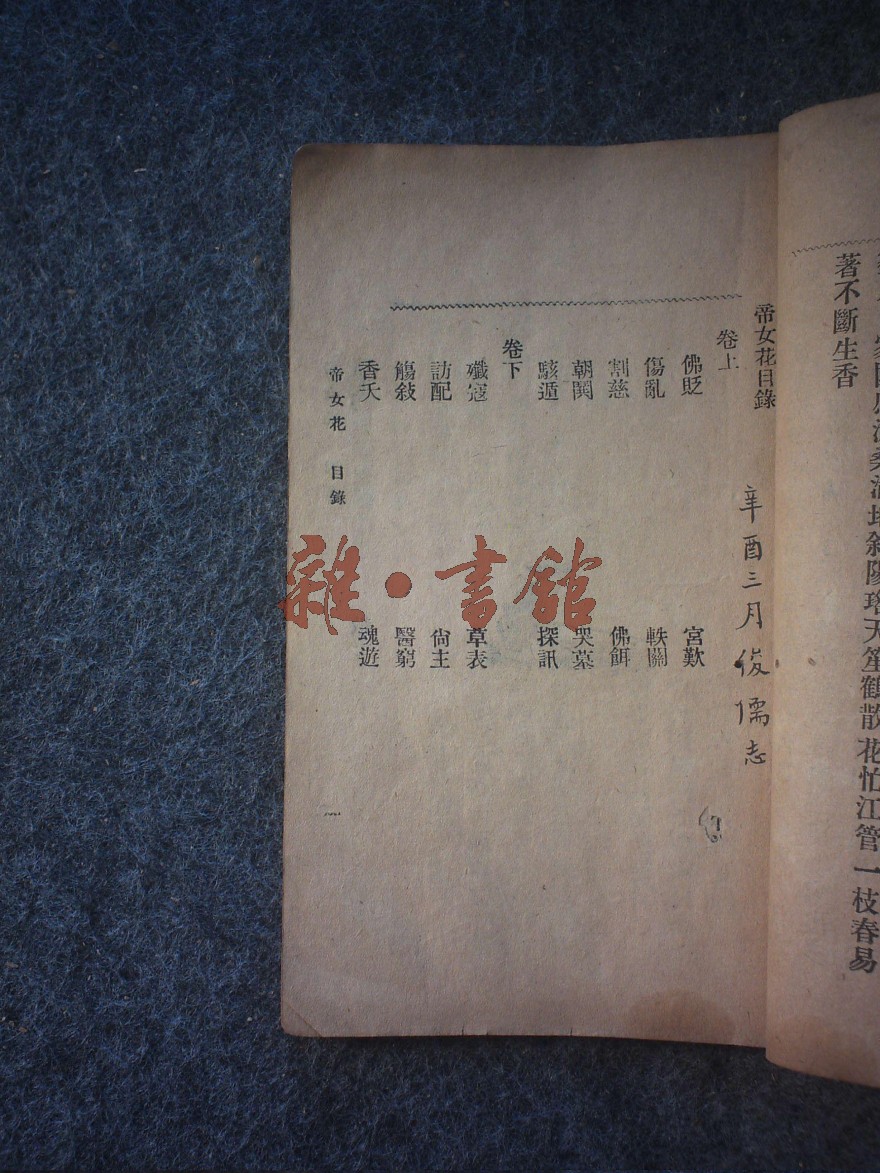 著不斷生香
帝女花目錄
卷上
佛貶
宮歎
傷亂
軼關
割慈
佛餌
朝鬨
哭墓
駭遁
探訊
卷下
殲寇
草表
訪配
尙主
觴敍
醫窮
香夭
魂遊
帝女花 目錄
一
辛酉三月俊儒志
雜·書館